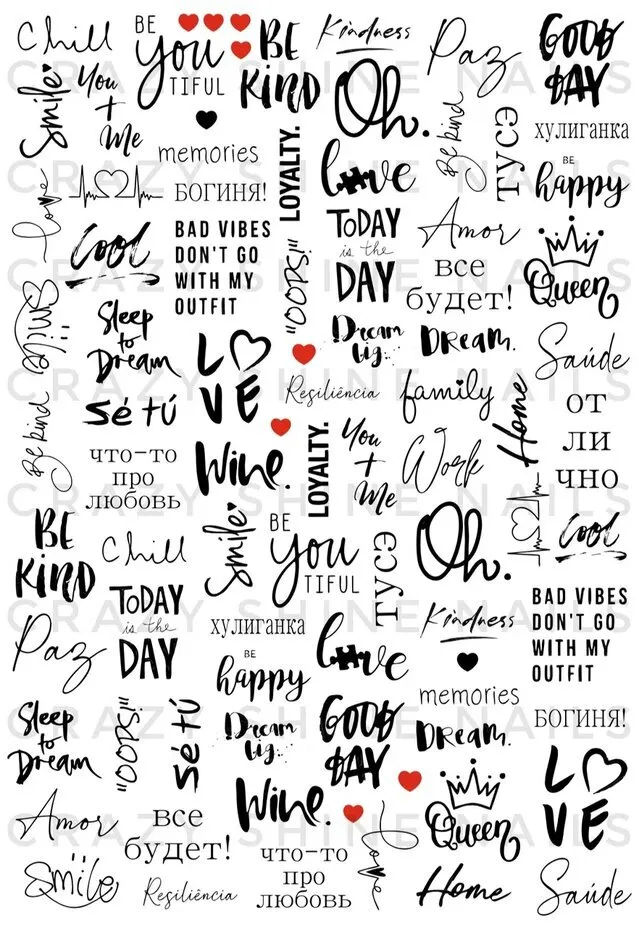 Chill
BE
YOU
TIFUL
BE
KIND
Kindness
Paz
GOOD
DAY
Smile
You
+
Me
Oh.
Be kind
тусэ
хулиганка
memories
LOYALTY.
love
BE
happy
love
БОГИНЯ!
Cool
BAD VIBES
DON'T GO
WITH MY
OUTFIT
"OOPS!"
TODAY
is the
DAY
Amor
все
будет!
Queen
Smile
Sleep
to
Dream
LOVE
Dream
big...
DREAM.
Saúde
Resiliência
family
Home
от
ли
чно
Be kind
sé tú
что-то
про
любовь
Wine.
LOYALTY.
You
+
Me
Work
Cool
BE
KIND
Chill
Smile
BE
YOU
TIFUL
тусэ
Oh.
BAD VIBES
DON'T GO
WITH MY
OUTFIT
TODAY
is the
DAY
Paz
хулиганка
BE
happy
love
Kindness
memories
БОГИНЯ!
Sleep
to
Dream
"OOPS!"
sé tú
Dream
big...
GOOD
DAY
DREAM.
LOVE
Wine.
Queen
Amor
все
будет!
Smile
Resiliência
что-то
про
любовь
love
Home
Saúde
CRAZY SHINE NAILS
CRAZY SHINE NAILS
CRAZY SHINE NAILS
CRAZY SHINE NAILS
CRAZY SHINE NAILS
CRAZY SHINE NAILS
CRAZY SHINE NAILS
CRAZY SHINE NAILS
CRAZY SHINE NAILS